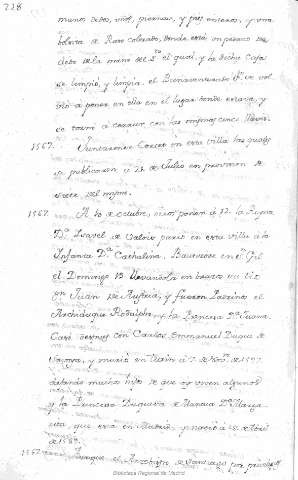 228
munos dedos, uñas, piernas, y pies enteros, y una
bolsita de Raso colorado, donde está un pedazo de
dedo de la mano del Sto el qual, y la dicha Caja
se limpió, y limpia. el Bienaventurado Sn se vol
vió a poner en ella en el lugar donde estava, y
se tornó á cerrar con las mismas cinco llaves.
1567. Juntaronse Cortes en esta villa las quales
se publicaron á 12 de Julio en
del mismo.
1567. A 10 de octubre, otros ponen á 12. la Reyna
Da Isavel de Valois parió en esta villa á la
Infanta Da Cathalina, Bautizose en Sn Gil
el Domingo 19 llevandola en brazos su tio
Dn Juan de Austria, y fueron Padrinos el
Archiduque Rodolfo, y la Princesa Da Juana.
Casó despues con Carlos Emmanuel Duque de
Saboya, y murió en Turin á 7 de Nove. de 1597
dejando muchos hijos de que oy viven algunos
y la Princesa Duquesa de Mantua Da Marga
rita que está en Madrid, y nació á 28 de Abril
de 1589.
1567. Aunque el Arzobispo de Santiago por
Biblioteca Regional de Madrid